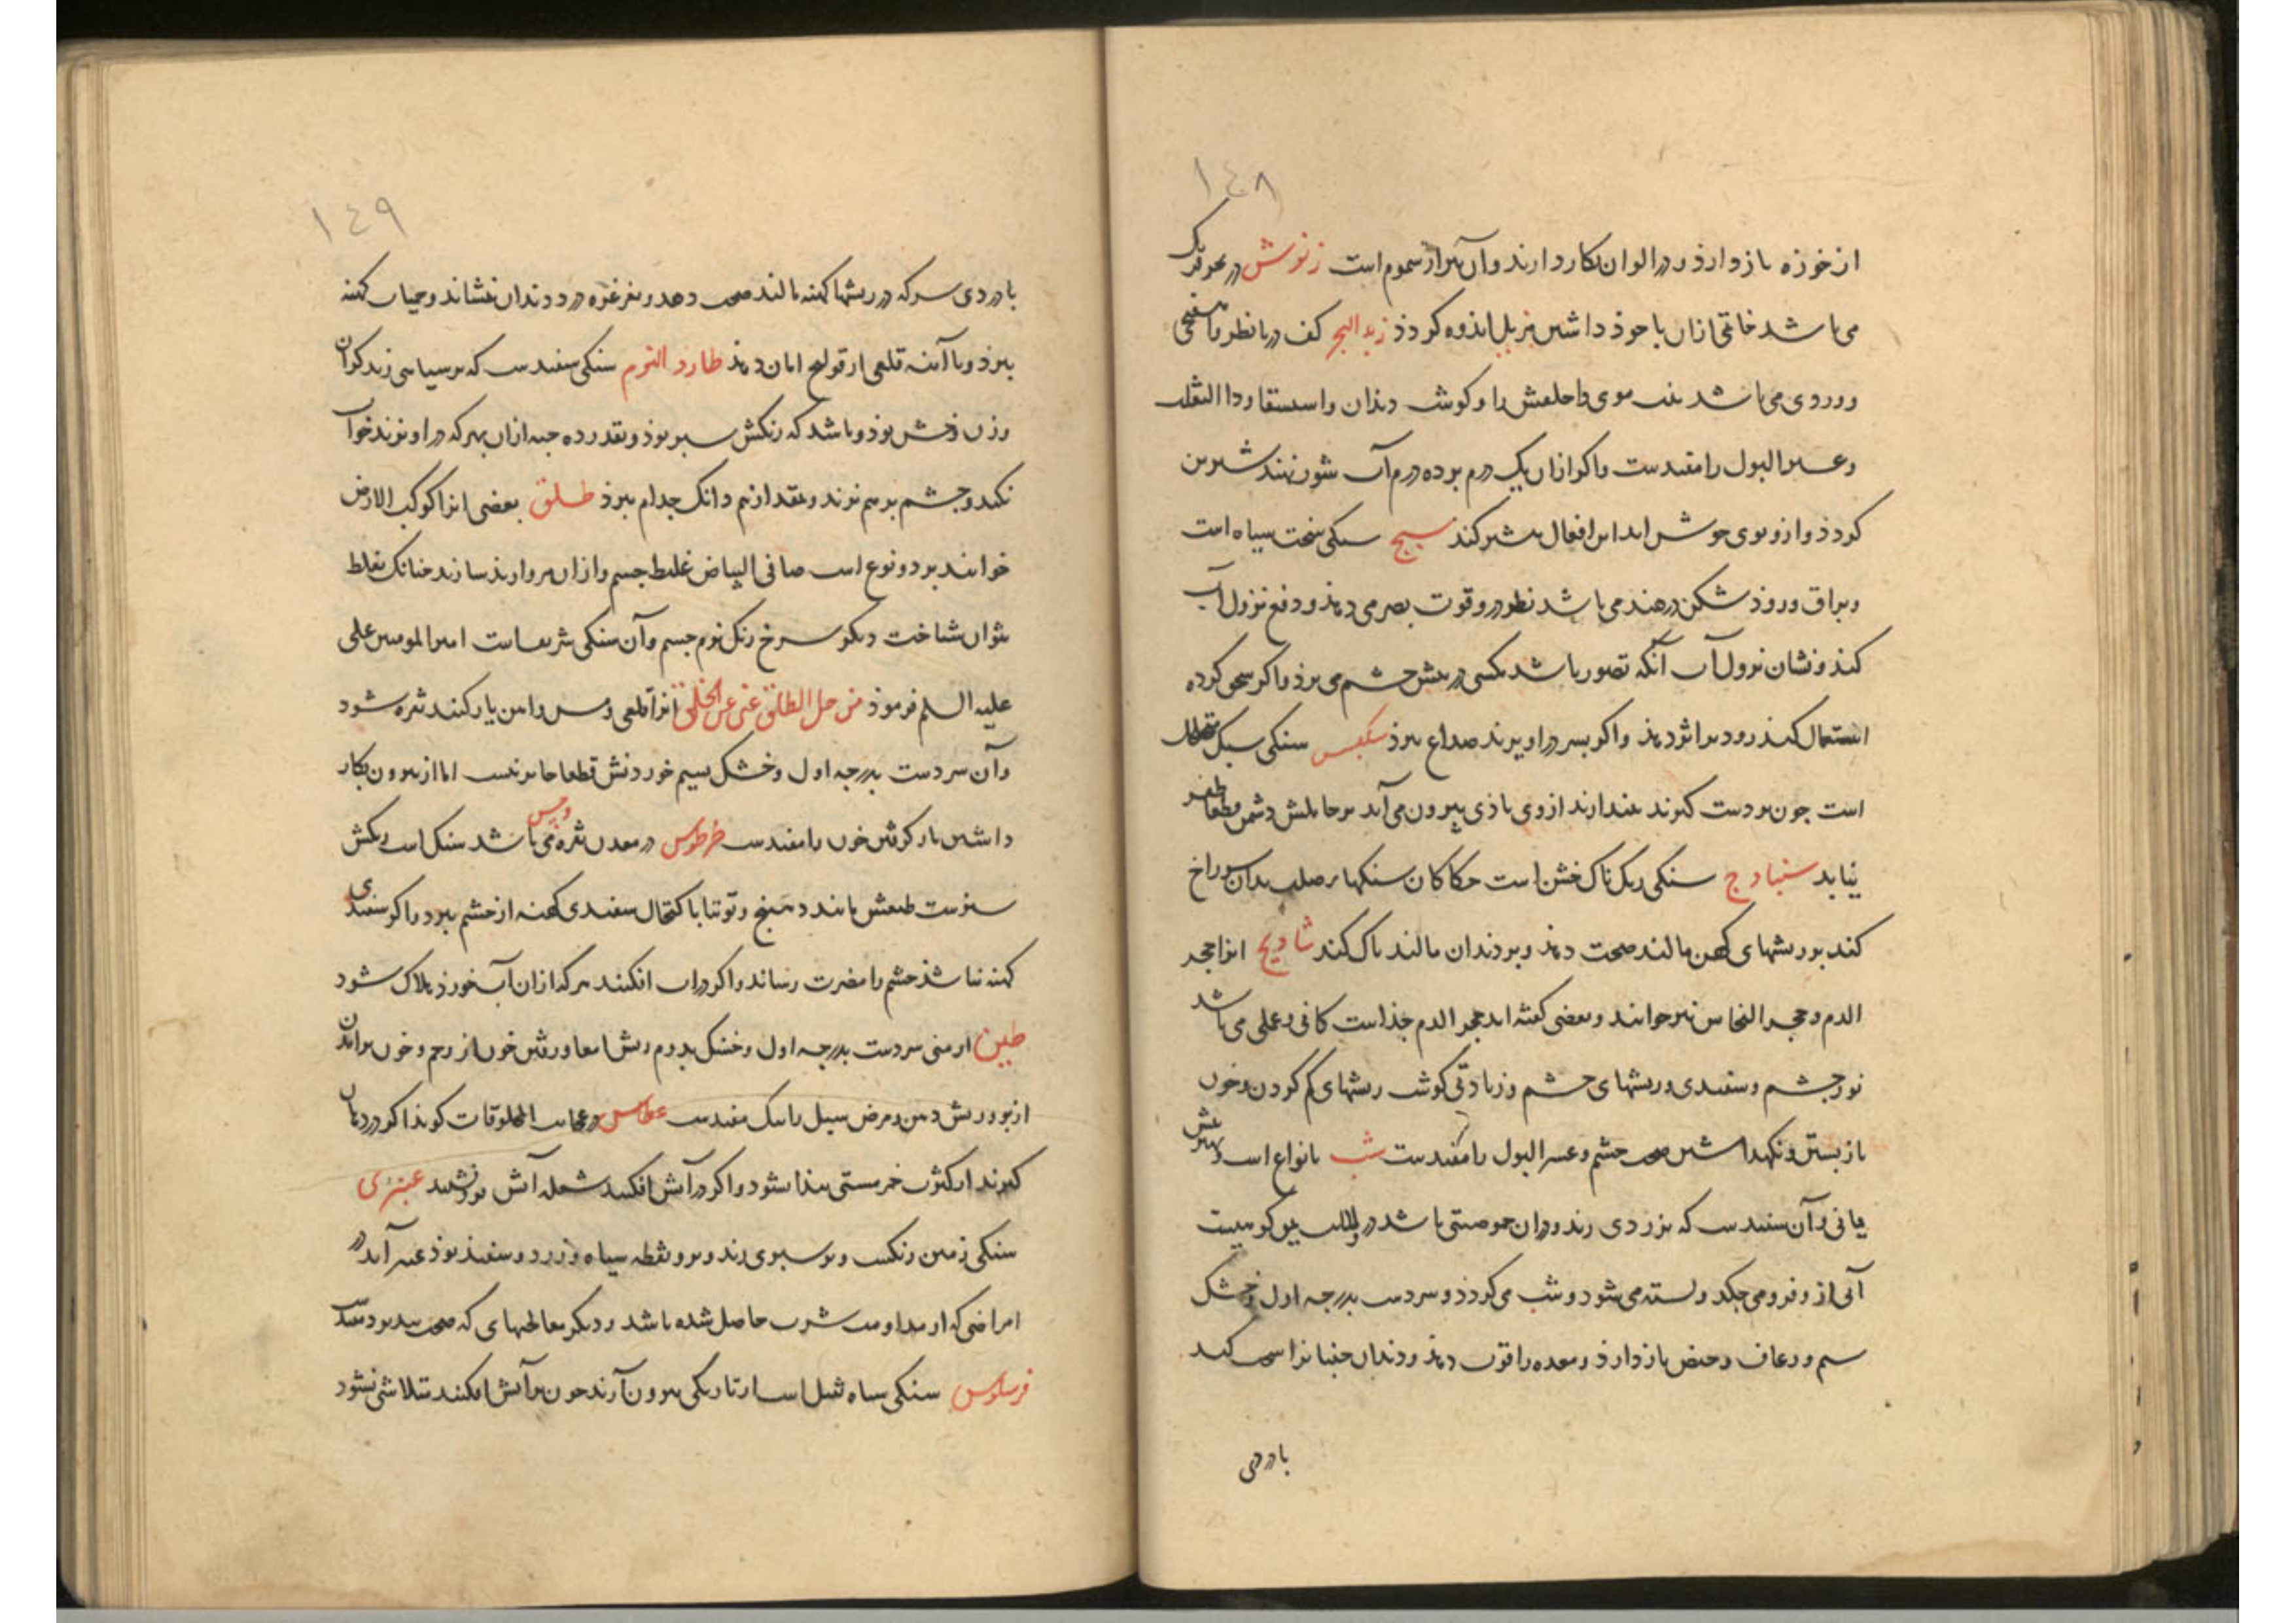 ١٤٨
از خوزه باز دارد و در الوان بکار دارند و آن هم از سموم است زنوش در بحر ترک
می باشد خاتمی ازان با خود داشتن مزیل اندوه گردد زبد البحر کف دریا نظر
و وردی می باشد موی داء الثعلب را و گوشت دندان و استسقا و داء الثعلب
و عسر البول را مفیدست و اگر ازان یک درم بر ده درم آب شور نهند شیرین
گردد و ازو بوی خوش اید این افعال بیشتر کند سبج سنگی سخت سیاه است
و براق و زود شکن در هند می باشد نظر درو قوت بصر می دهد و دفع نزول آب
کند و نشان نزول آب آنکه تصور باشد مگسی در پیش چشم می پرد و اگر سحق کرده
استعمال کنند زودتر اثر دهد و اگر بسر در اویزند صداع ببرد سنگی سبک
است چون بر دست گیرند پندارند از وی باذی بیرون می آید بر حاملش دشمن قطعا ظفر
نیابد سنبادج سنگی ریگ ناک خشن است حکاکان سنگهاء صلب بدان سوراخ
کنند بر ریشهای کهن مالند صحت دهد و بر دندان مالند پاک کند شادنج انرا حجر
الدم و حجر النحاس نیز خوانند و بعضی گفته اند حجر الدم جداست کانی و عملی می باشد
نور چشم و سفیدی و ریشهای چشم و زیادتی گوشت ریشهای کم کردن و خون
باز بستن و نگهداشتن صحت چشم و عسر البول را مفیدست شب بانواع است و بهترینش
یمانی و آن سفیدست که بزردی زند و دران حموضتی باشد در ولایت یمن کوهیست
آبی از و فرو می چکد و بسته می شود و شب می گردد و سردست بدرجه اول و خشک
بسیم و رعاف و حیض باز دارد و معده را قوت دهد و دندان جنبانرا سخت کند
با دردی
١٤٩
با دردی سرکه در ریشها کهنه مالند صحت دهد و بغرغره درد دندان بنشاند و حمیات کهنه
ببرد و با آینه قلعی از قولنج امان دهد طارد النوم سنگی سفیدست که بر سیاهی زند گران
وزن و خشن بود و باشد که رنگش سبز بود و بقدر ده حبه ازان بهر که دراویزند خواب
نکند و چشم بر هم نزند و بمقدار نیم دانگ جذام ببرد طلق بعضی انرا کوکب الارض
خوانند بر دو نوع است صافی البیاض غلیط جسم و ازان مروارید سازند چنانک بغلط
بتوان شناخت دیگر سرخ رنگ نرم جسم و آن سنگی شریفست امیر المومنین علی
علیه السلم فرمود من حل الطلق غنی عن الخلق انرا قلعی و مس و اهن یار کنند نقره شود
و آن سردست بدرجه اول و خشک بسیم خوردنش قطعا جایز نیست اما از بیرون بکار
داشتن باز گرفتن خون را مفیدست در معدن نقره و مس می باشد سنگ است رنگش
سبزست طبعش مانند دهنج و توتیا باکتحال سفیدی کهنه از چشم ببرد و اگر سفیدی
کهنه نباشد چشم را مضرت رساند و اگر در اب افکنند هر که ازان آب خورد هلاک شود
طین ارمنی سردست بدرجه اول و خشک بدوم ریش امعا و رفتن خون از رحم و خون برآمدن
از و ریش دهن و مرض سل را نیک مفیدست در عجایب المخلوقات گوید اگر در دهان
گیرند از کثرت خمر مستی پیدا نشود و اگر در آتش افکنند شعله آتش فرو نشیند عنبری
سنگی زمین رنگست و بر سبزی زند و برو نقطه سیاه و زرد و سفید بود عنبر آید در
امراضی که از مداومت شرب حاصل شده باشد و دیگر معالجهای که صحت پذیر بود مفیدست
سنگی سیاه ثقیل است از تاریکی بیرون آرند چون بر آتش افکنند متلاشی نشود